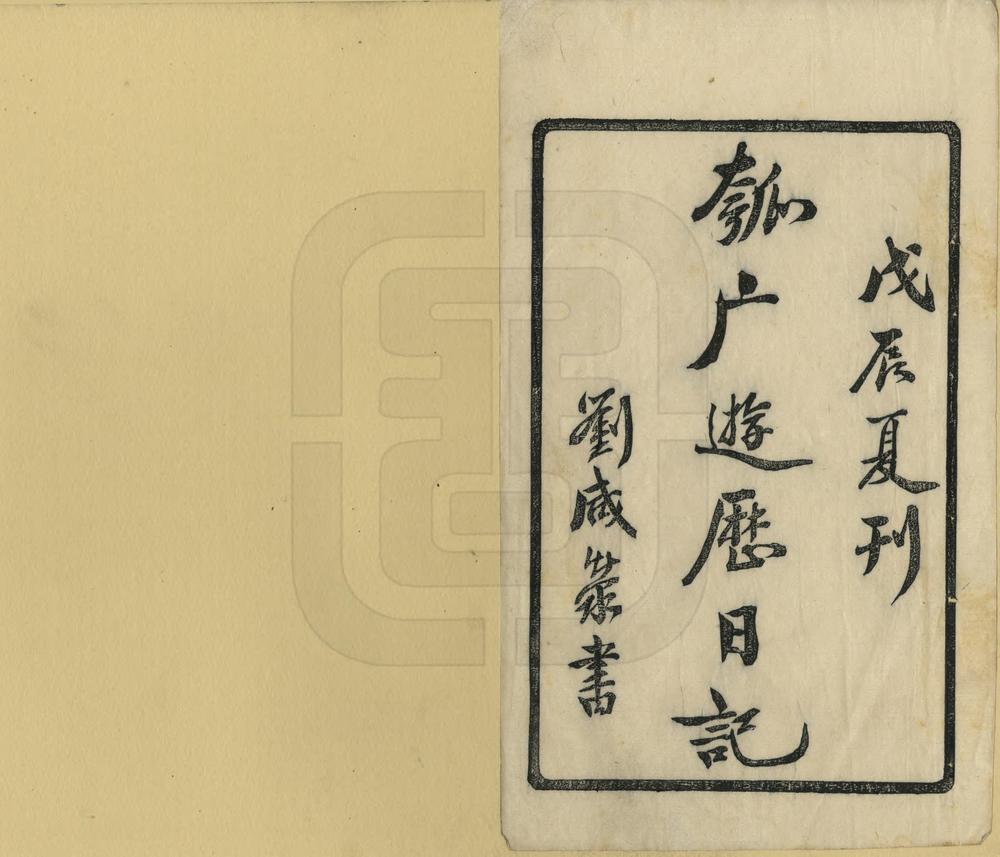 戊辰夏刊
瓠广遊歷日記
劉咸榮書